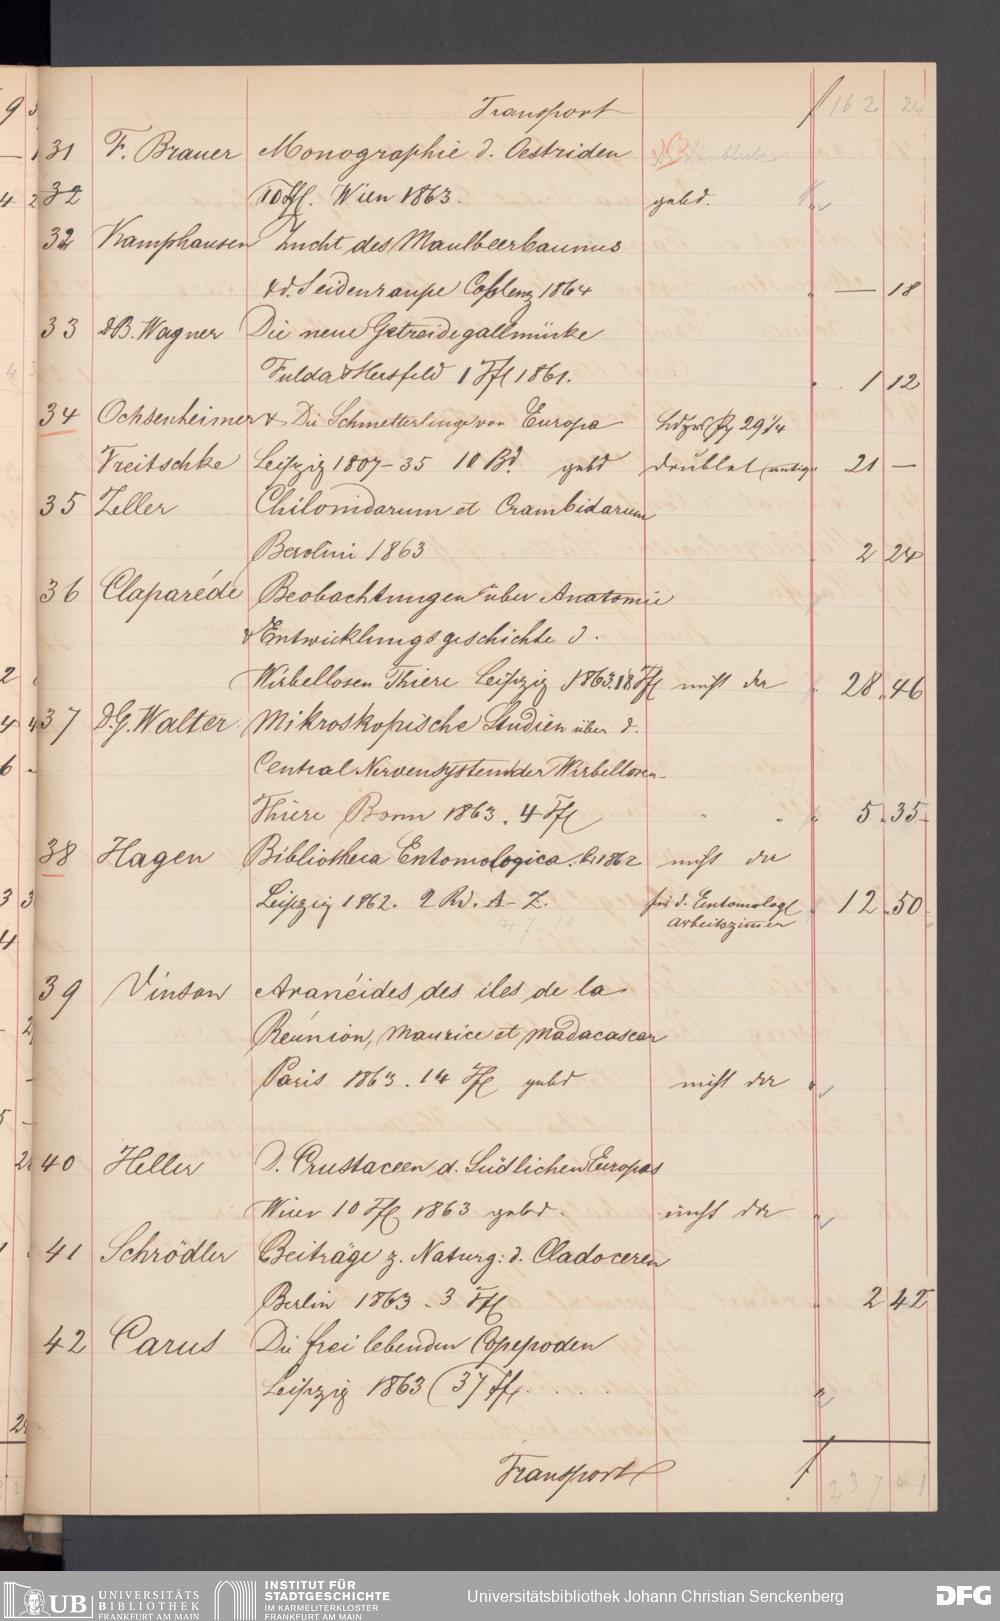 Transport 162 24
31 F. Brauer Monographie d. Oestriden
32 Wien 1863. gebd.
32 Kamphausen Zucht des Maulbeerbaumes
& d. Seidenraupe Coblenz 1864 — 18
33 Wagner Die neue Getreidegallmücke
Fulda & Hersfeld 1 1861. 1 12
34 Ochsenheimer & Die Schmetterlinge von Europa 29 1/4
Treitschke Leipzig 1807–35 10 Bd. gebd doublet 21 —
35 Zeller Chilonidarum et Crambidarum
Berolini 1863 2 24
36 Claparéde Beobachtungen über Anatomie
& Entwicklungsgeschichte d.
Wirbellosen Thiere Leipzig 1863. 18 nicht da 28 46
37 D. G. Walter Mikroskopische Studien über d.
Central Nervensystem der Wirbellosen
Thiere Bonn 1863. 4 " " 5 35
38 Hagen Bibliotheca Entomologica. bis 1862 nicht da
Leipzig 1862. 2 Bd. A–Z. für d. Entomolog 12 50
arbeitszimmer
39 Vinson Aranéides des iles de la
Réunion, Maurice et Madacascar
Paris 1863. 14 gebd nicht da "
40 Heller D. Crustaceen d. Südlichen Europas
Wien 10 1863 gebd. nicht da "
41 Schrödler Beiträge z. Naturg: d. Cladoceren
Berlin 1863. 3 2 42
42 Carus Die frei lebenden Copepoden
Leipzig 1863 (37
Transport
UB UNIVERSITÄTS
BIBLIOTHEK
FRANKFURT AM MAIN
INSTITUT FÜR
STADTGESCHICHTE
IM KARMELITERKLOSTER
FRANKFURT AM MAIN
Universitätsbibliothek Johann Christian Senckenberg
DFG